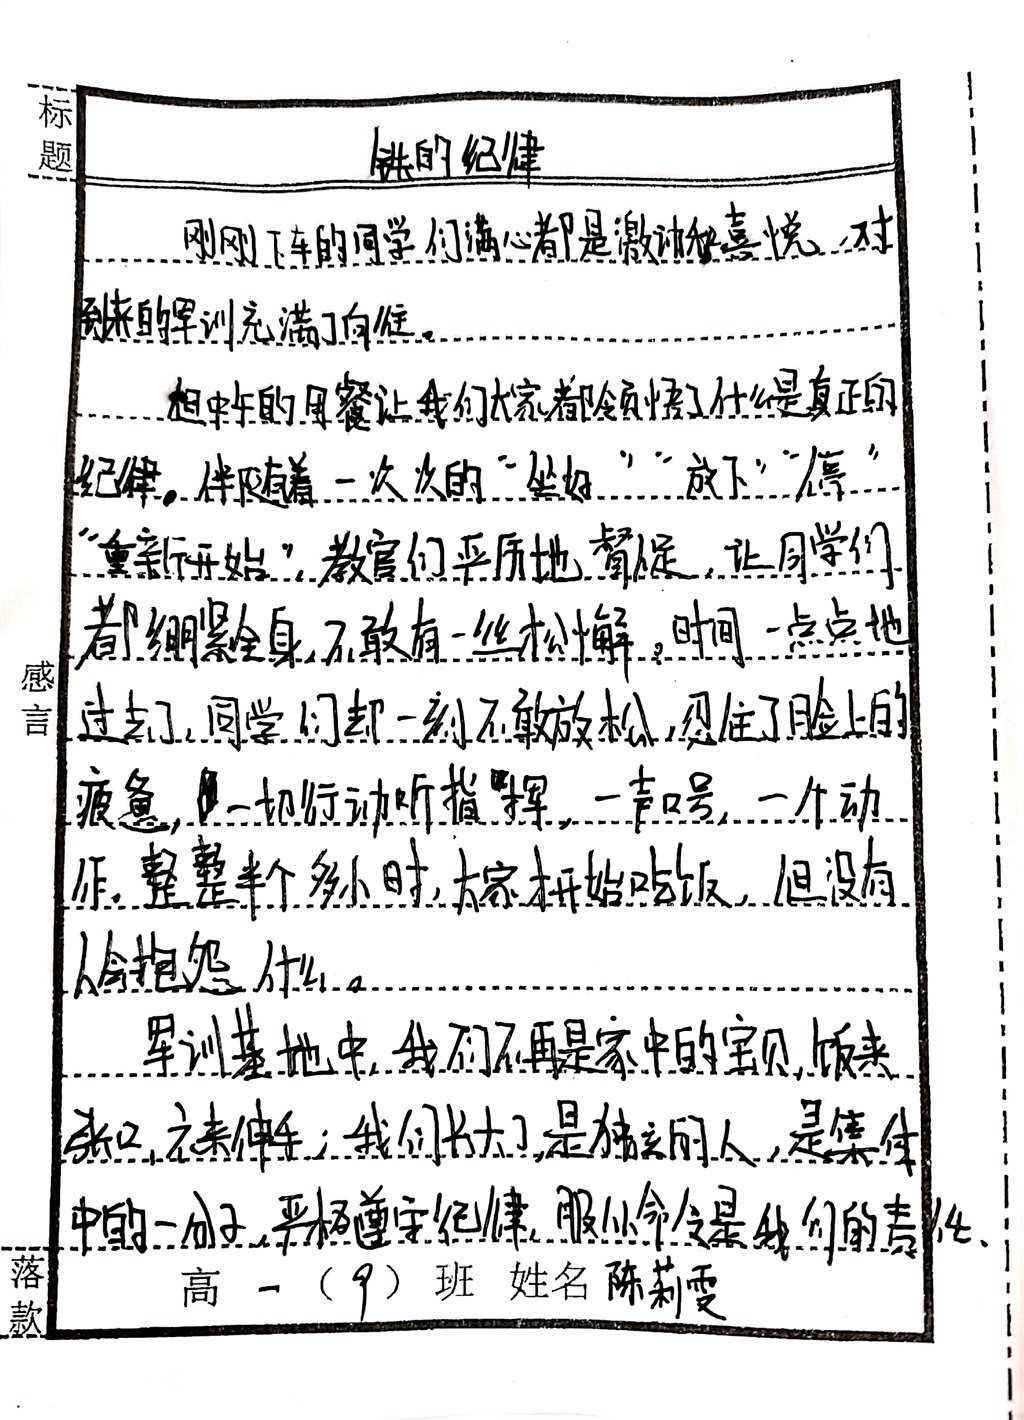 标题
铁的纪律
刚刚下车的同学们满心都是激动和喜悦,对
到来的军训充满了向往。
但中午的用餐让我们大家都领悟了什么是真正的
纪律。伴随着一次次的“坐好”“放下”“停”
“重新开始”,教官们严厉地督促,让同学们
都绷紧全身,不敢有一丝松懈。时间一点点地
过去了,同学们却一刻不敢放松,忍住了脸上的
疲惫,一切行动听指挥,一声口号,一个动
作。整整半个多小时,大家才开始吃饭,但没有
人会抱怨什么。
军训基地中,我们不再是家中的宝贝,饭来
张口,衣来伸手;我们长大了,是独立的人,是集体
中的一分子,严格遵守纪律,服从命令是我们的责任、
感言
落款
高一(9)班 姓名 陈莉雯